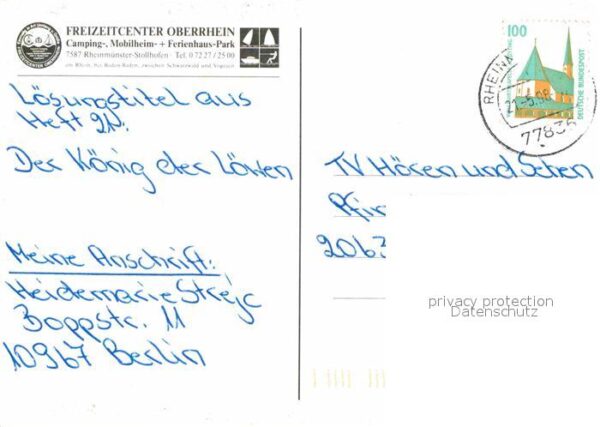 FREIZEITCENTER OBERRHEIN
Camping-, Mobilheim- + Ferienhaus-Park
7587 Rheinmünster-Stollhofen Tel. 0 72 27 / 25 00
am Rhein, bei Baden-Baden, zwischen Schwarzwald und Vogesen
Lösungstitel aus
Heft 21.
Der König der Löwen
Meine Anschrift:
Heidemarie Strejc
Boppstr. 11
10967 Berlin
100
DEUTSCHE BUNDESPOST
RHEINM
21.-5.98
77836
TV Hören und Sehen
Pfir
2063
privacy protection
Datenschutz